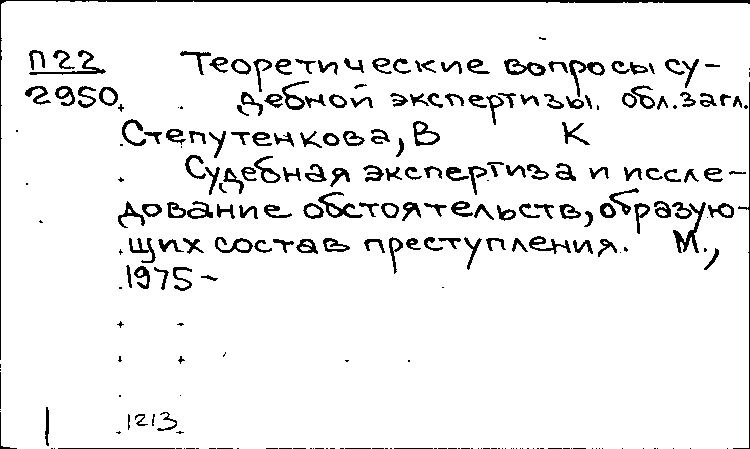 П22 Теоретические вопросы су-
2950 дебной экспертизы. обл.загл.
Степутенкова, В К
Судебная экспертиза и иссле-
дование обстоятельств, образую-
щих состав преступления. М.,
1975-
1213